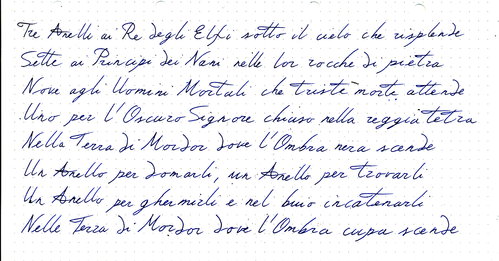 Tre Anelli ai Re degli Elfi sotto il cielo che risplende
Sette ai Principi dei Nani nelle lor rocche di pietra
Nove agli Uomini Mortali che triste morte attende
Uno per l'Oscuro Signore chiuso nella reggia tetra
Nella Terra di Mordor dove l'Ombra nera scende
Un Anello per domarli, un Anello per trovarli
Un Anello per ghermirli e nel buio incatenarli
Nelle Terra di Mordor dove l'Ombra cupa scende